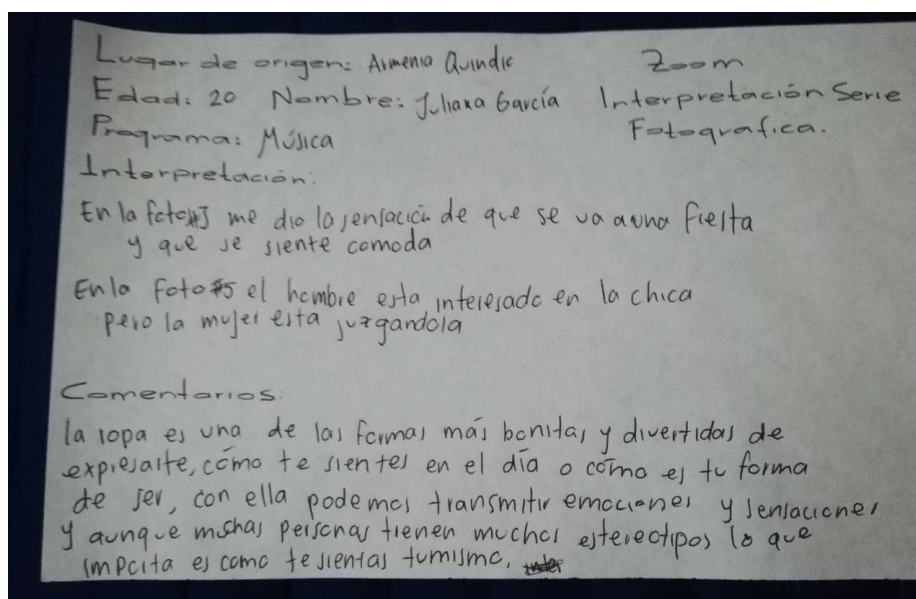 Lugar de origen: Armenia Quindio Zoom
Edad: 20 Nombre: Juliana García Interpretación Serie
Programa: Música Fotografica.
Interpretación:
En la foto#3 me dio la sensación de que se va a una fiesta
y que se siente comoda
En la foto#5 el hombre esta interesado en la chica
pero la mujer esta juzgandola
Comentarios:
la ropa es una de las formas más bonitas y divertidas de
expresarte, cómo te sientes en el día o cómo es tu forma
de ser, con ella podemos transmitir emociones y sensaciones
y aunque muchas personas tienen muchos estereotipos lo que
importa es como te sientas tumismo.